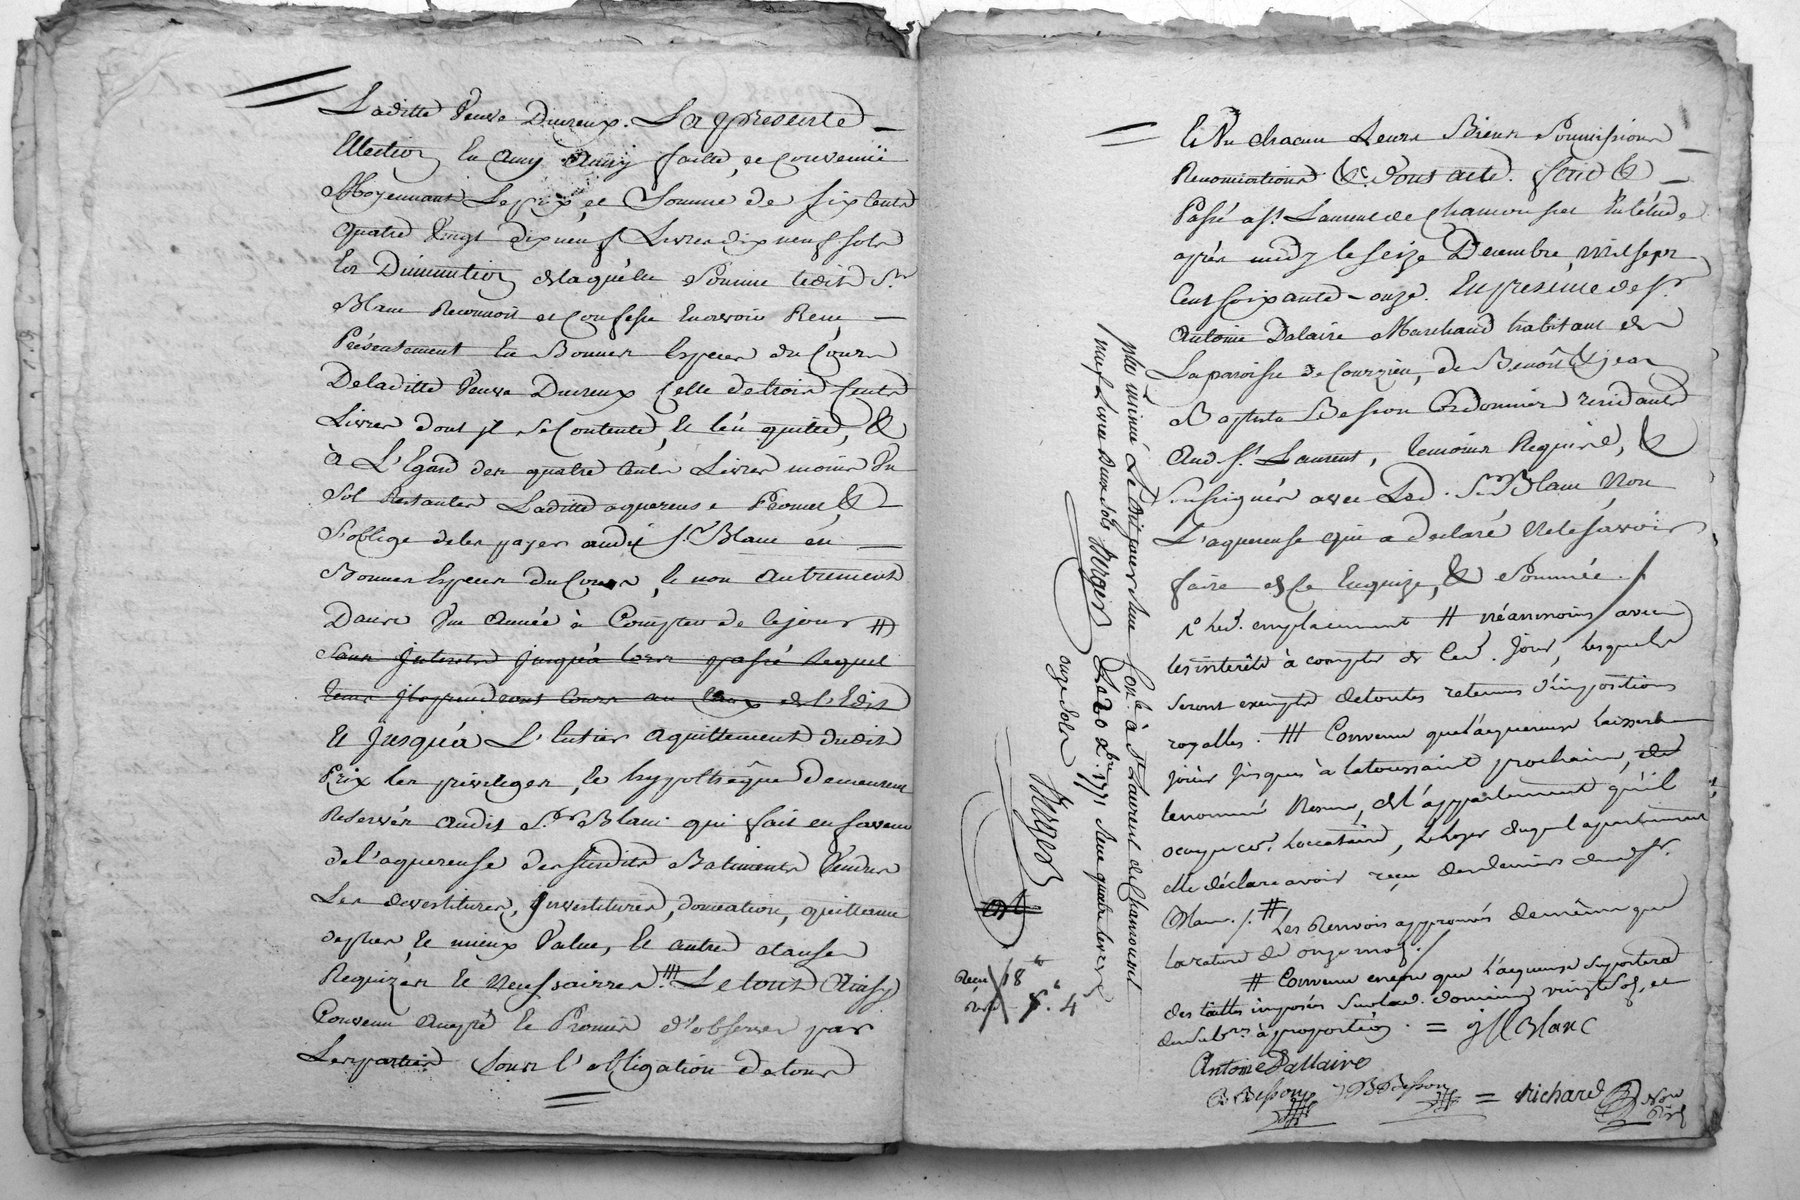 Laditte Veuve Ducreux. La presente
Election En amy faitte, et Convenuë
Moyennant Le prix, et Somme de six Cents
quatre Vingt dix neuf Livres dix neuf sols
En Diminution de laquelle Somme ledit Sr.
Blanc Reconnoit et Confesse En avoir Reçu
Présentement En Bonnes Especes du Cours
De laditte Veuve Ducreux Celle de trois Cents
Livres dont il se Contente, et l'en quitte, &
à L'Egard des quatre Cents Livres moins Un
Sol Restantes Laditte aquereuse Promet, &
S'oblige de les payer audit Sr. Blanc en
Bonnes Especes du Cours, et non autrement
Dans Une Année à Compter de ce jour #
Sans Interets jusqu'à lors passé Lequel
tems ils prendront Cours au taux de l'Edit
Et Jusqu'à L'Entier aquittement dudit
Prix les privileges, et hypothêque demeurent
Reservés audit Sr. Blanc qui fait en faveur
de l'aquereuse des susdits Batiments Vendus
Les devestitures, Investitures, donnation, quittance
de plus, et mieux Value, Et autres clauses
Requizes et Necessairres. ## Le tout Ainsy
Convenu Accepté et Promis d'observer par
Les parties Sous l'obligation de tous
Et Un chacun Leurs Biens Soumissions
Renonciations &c. Dont acte. fait &
Passé a St. Laurent de Chamousset En l'étude
après midy le seize Decembre, mil sept
Cent soixante-onze. En presence de Sr.
Antoine Dalaire Marchand habitant de
La paroisse de Courzieu, de Benoît & jean
Baptiste Besson Cordonniers residants
Aud. St. Laurent, temoins Requis, &
soussignés avec Led. Sr. Blanc Non
L'aquereuse qui a declaré Ne le savoir
faire de Ce Enquize, & Sommée ./.
emplacement # néanmoins avec
les interêts à compter de Ced. Jour, lesquels
seront exempts de toutes retenues d'impositions
royalles. ## Convenu que l'aquereuse laissera
jouir jusques à la toussaint prochaine, de
le nommé de l'appartement qu'il
occupe co. Locataire, le loyer duquel apartement
elle déclare avoir reçu des deniers dud. Sr.
Blanc. /. # Les Renvois approuvés de même que
la rature de onze mots ./.
# Convenu encore que l'aquereuse Suportera
des tailles imposées Sur led. domaine vingt Sols, et
à proportion. = J M Blanc
Antoine Dallaire
B Besson J B Besson = Richard Nore
Royal
plus Insinué Ledit jour Aud. à St. Laurent de Chamousset
neuf Livres Deux Sols Verger Le 20 Xbre. 1771. Reçu quatre Livres
onze Sols Verger
Reçu 18 #
4 s.